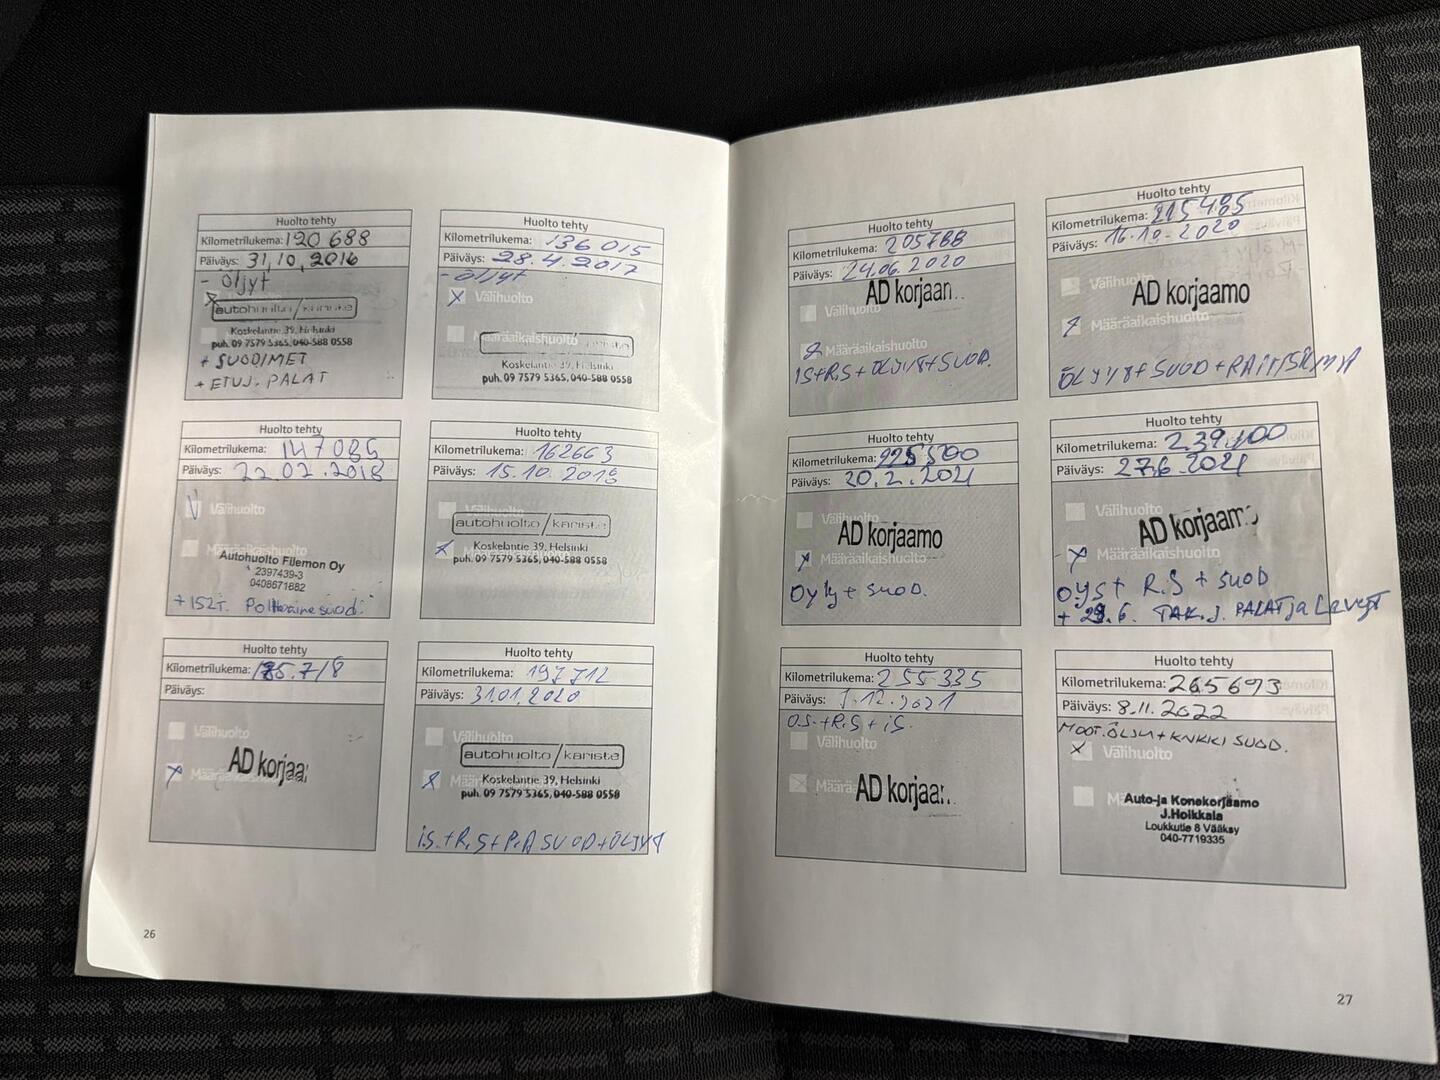 Huolto tehty
Kilometrilukema: 120 688
Päiväys: 31,10,2016
- öljyt
autohuolto/kariste
Koskelantie 39, Helsinki
puh. 09 7579 5365, 040-588 0558
+ SUODIMET
+ ETUJ. PALAT
Huolto tehty
Kilometrilukema: 136 015
Päiväys: 28.4.2017
- öljyt
Välihuolto
Määräaikaishuolto
kariste
Koskelantie 39, Helsinki
puh. 09 7579 5365, 040-588 0558
Huolto tehty
Kilometrilukema: 147085
Päiväys: 22.02.2018
Välihuolto
Autohuolto Filemon Oy
2397439-3
0408671682
+ 152T. Polttoainesuod.
Huolto tehty
Kilometrilukema: 162663
Päiväys: 15.10.2018
autohuolto/kariste
Koskelantie 39, Helsinki
puh. 09 7579 5365, 040-588 0558
Huolto tehty
Kilometrilukema: 185.718
Päiväys:
Välihuolto
AD korjaa
Huolto tehty
Kilometrilukema: 197712
Päiväys: 31.01.2020
Välihuolto
autohuolto/kariste
Koskelantie 39, Helsinki
puh. 09 7579 5365, 040-588 0558
i.S.+R.S+P.A SUOD+ÖLJYT
26
Huolto tehty
Kilometrilukema: 205788
Päiväys: 24.06.2020
AD korjaam
Välihuolto
Määräaikaishuolto
IS+R.S+ÖLJYT+SUOD.
Huolto tehty
Kilometrilukema: 215485
Päiväys: 16.10-2020
Välihuolto
AD korjaamo
Määräaikaishuolto
ÖLJYT+SUOD+RAITISILMA
Huolto tehty
Kilometrilukema: 225500
Päiväys: 20.2.2021
Välihuolto
AD korjaamo
Määräaikaishuolto
Öyly+ SUOD.
Huolto tehty
Kilometrilukema: 239100
Päiväys: 27.6.2021
Välihuolto
AD korjaamo
Määräaikaishuolto
R.S + SUOD
+ 29.6. TAK.J. PALAT ja Levyt
Huolto tehty
Kilometrilukema: 255335
Päiväys: 12.2021
Ö.S.+R.S+iS.
Välihuolto
AD korjaa
Huolto tehty
Kilometrilukema: 265693
Päiväys: 8.11.2022
MOOT.ÖLJY+KAIKKI SUOD.
Välihuolto
Auto-ja Konekorjaamo
J.Hoikkala
Loukkutie 8 Vääksy
040-7719335
27